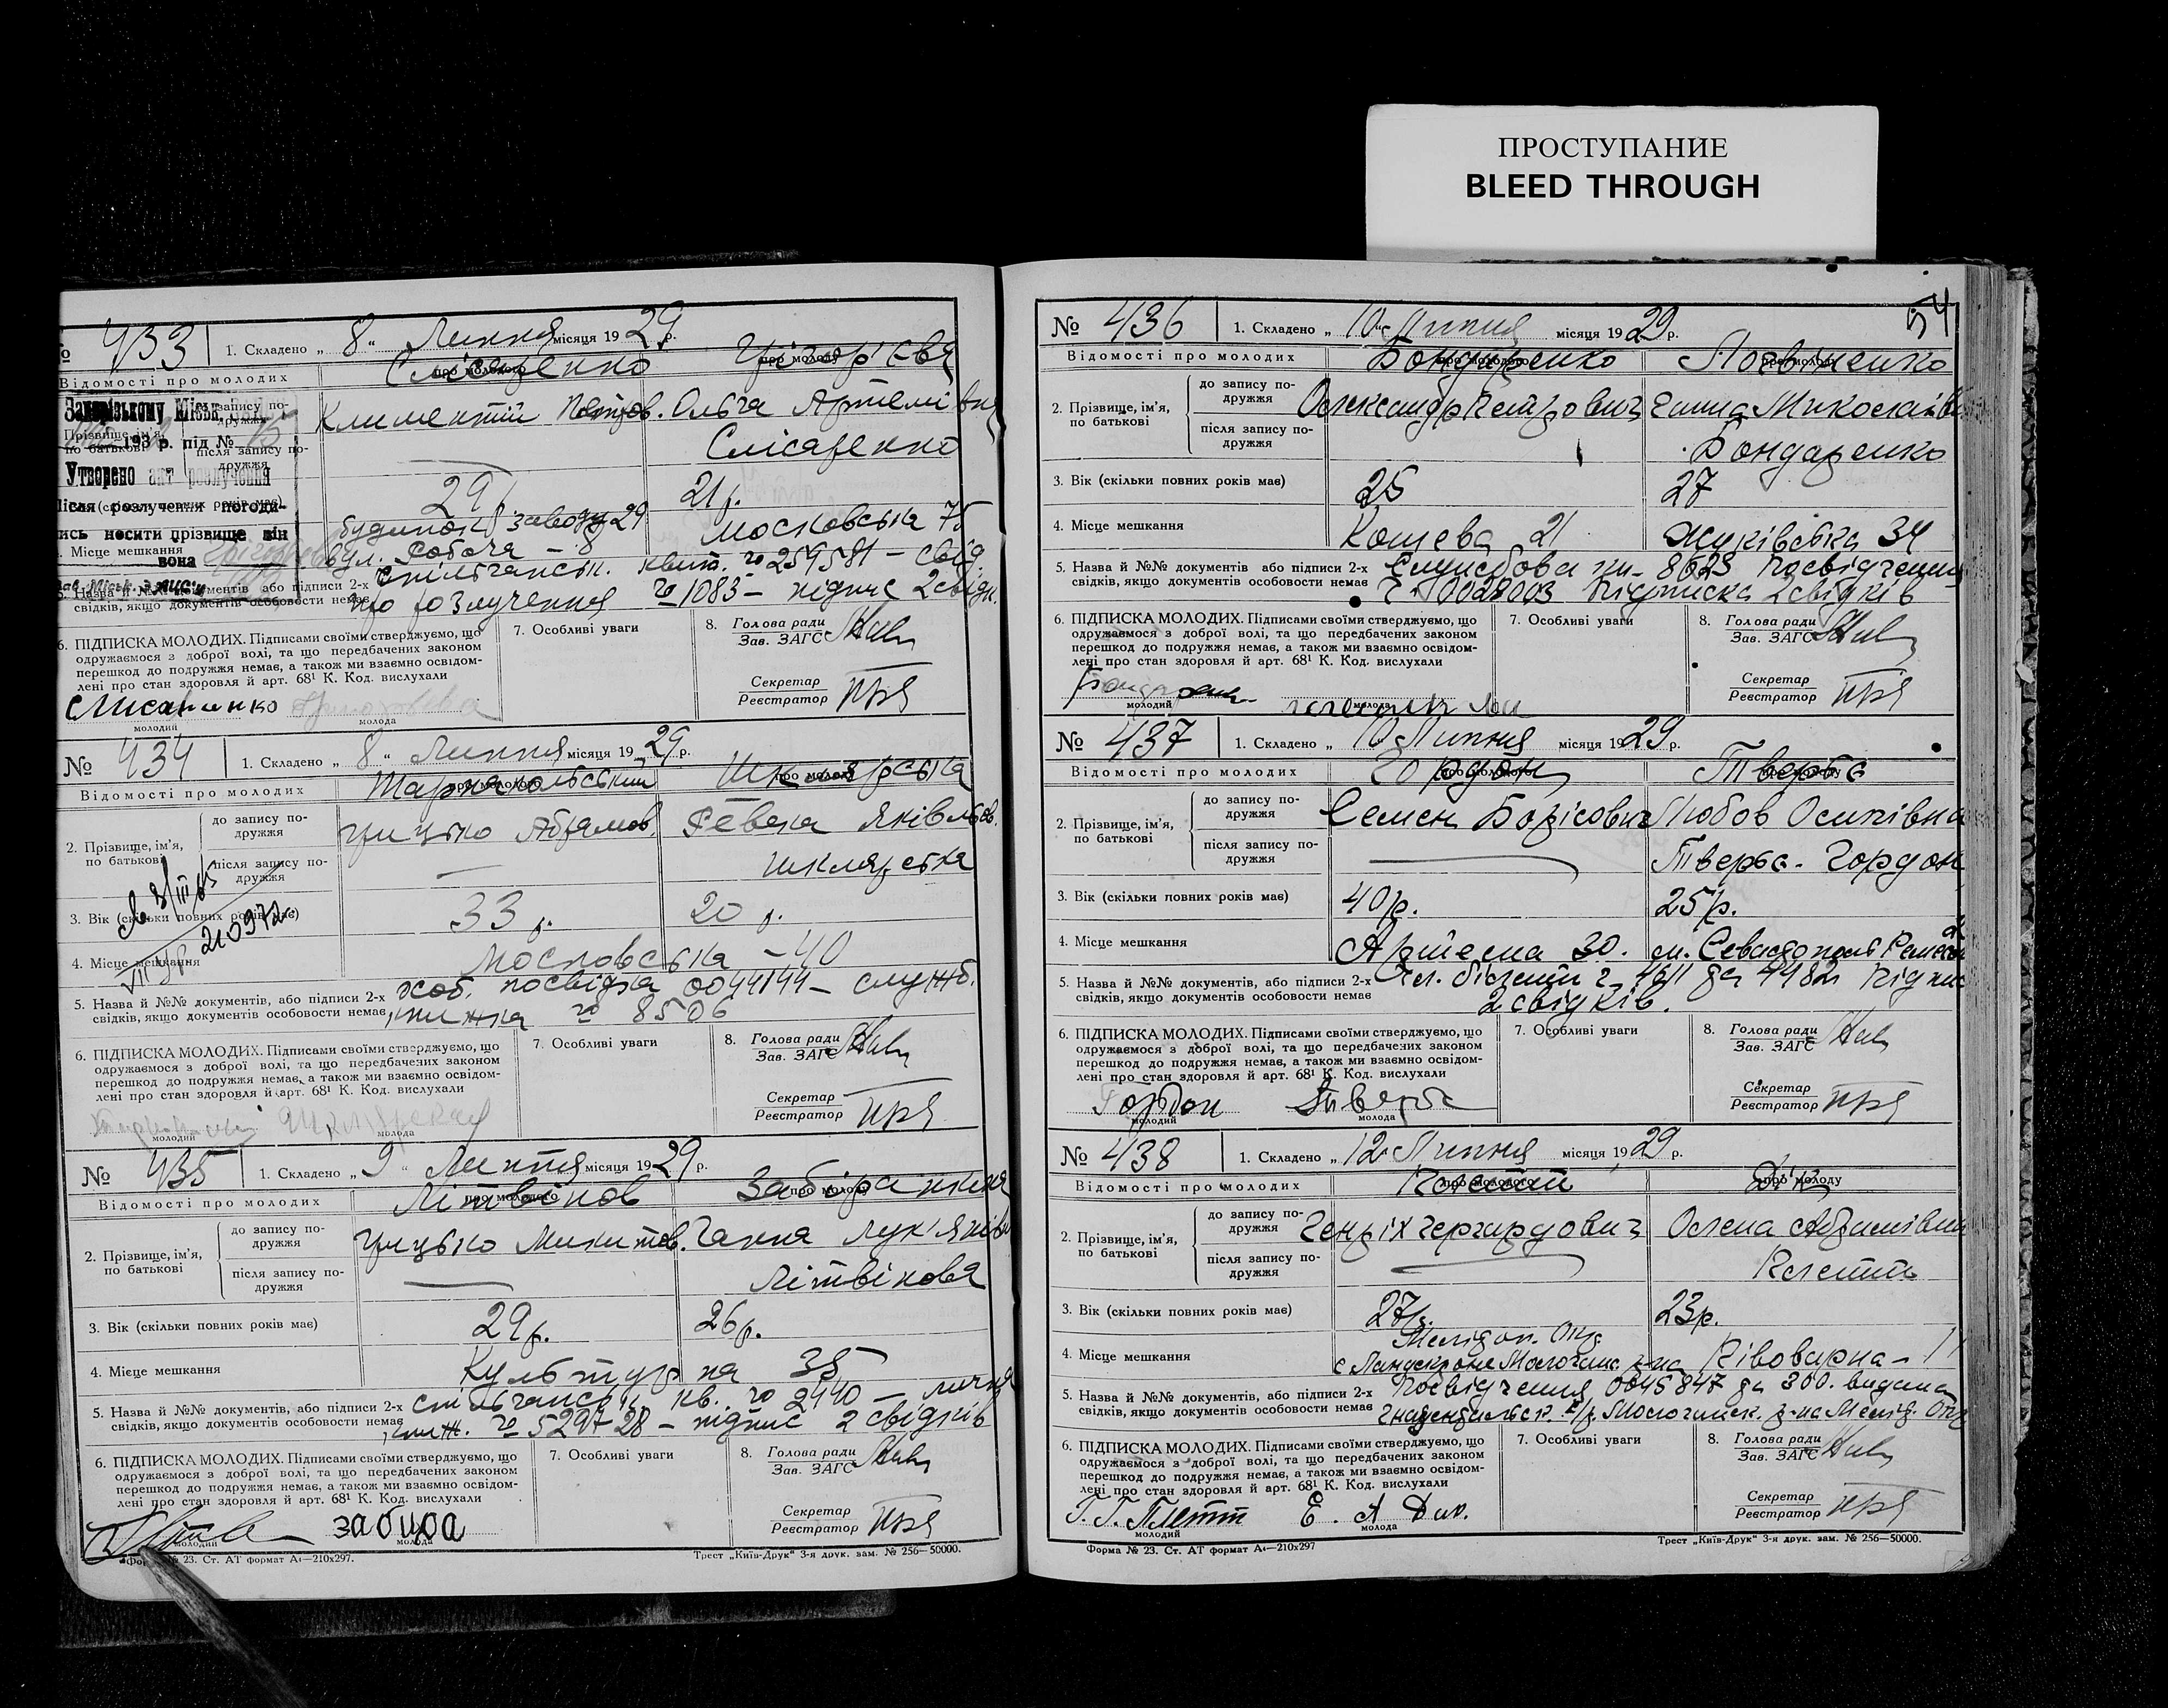 ПРОСТУПАНИЕ
BLEED THROUGH
№ 433 1. Складено „ 8 “ Липня місяця 1929 р.
Відомості про молодих про молодого про молоду
Слісаренко Грігор'єва
Запорізькому Міськ.
до запису подружжя
Климентій Петров. Ольга Артемівна
2. Прізвище, ім'я, по батькові
193 р. під № 15
після запису подружжя
Слісаренко
Утворено акт розлучення
29 р. 21 р.
Після розлучення погодились носити прізвище він
вона
будинок заводу 29 Московська 75
4. Місце мешкання
вул. Робоча – 8
5. Назва й №№ документів, або підписи 2-х свідків, якщо документів особовости немає
спільчанськ. квит. № 259581 – свід.
про розлучення № 1083 – підпис 2 свідк.
6. ПІДПИСКА МОЛОДИХ. Підписами своїми стверджуємо, що
одружаємося з доброї волі, та що передбачених законом
перешкод до подружжя немає, а також ми взаємно освідом-
лені про стан здоровля й арт. 68¹ К. Код. вислухали
7. Особливі уваги
8. Голова ради
Зав. ЗАГС
Секретар
Реєстратор
молодий молода
№ 434 1. Складено „ 8 “ Липня місяця 1929 р.
Відомості про молодих про молоду
Шклярська
2. Прізвище, ім'я,
по батькові
до запису по-
дружжя
Грицько Абрамов. Ревека Яківльов.
після запису по-
дружжя
Шклярська
3. Вік (скільки повних років має)
33 р. 20 р.
4. Місце мешкання
Московська – 40
5. Назва й №№ документів, або підписи 2-х
свідків, якщо документів особовости немає
особ. посвідка 0044144 – служб.
книжка № 8506
6. ПІДПИСКА МОЛОДИХ. Підписами своїми стверджуємо, що
одружаємося з доброї волі, та що передбачених законом
перешкод до подружжя немає, а також ми взаємно освідом-
лені про стан здоровля й арт. 68¹ К. Код. вислухали
7. Особливі уваги
8. Голова ради
Зав. ЗАГС
Секретар
Реєстратор
молодий молода
№ 435 1. Складено „ 9 “ Липня місяця 1929 р.
Відомості про молодих про молодого про молоду
Літвінов
2. Прізвище, ім'я,
по батькові
до запису по-
дружжя
Грицько Микитов. Ганна Лук'янівна
після запису по-
дружжя
Літвінова
3. Вік (скільки повних років має)
29 р. 26 р.
4. Місце мешкання
Культурна 35
5. Назва й №№ документів, або підписи 2-х
свідків, якщо документів особовости немає
спільчанськ. кв. № 2440 –
книж. № 5297 28 – підпис 2 свідків
6. ПІДПИСКА МОЛОДИХ. Підписами своїми стверджуємо, що
одружаємося з доброї волі, та що передбачених законом
перешкод до подружжя немає, а також ми взаємно освідом-
лені про стан здоровля й арт. 68¹ К. Код. вислухали
7. Особливі уваги
8. Голова ради
Зав. ЗАГС
Секретар
Реєстратор
забира
молодий молода
Форма № 23. Ст. АТ формат А₄—210х297. Трест „Київ-Друк“ 3-я друк. зам. № 256—50000.
54
№ 436 1. Складено „ 10 “ Липня місяця 1929 р.
Відомості про молодих про молодого про молоду
Бондаренко
2. Прізвище, ім'я,
по батькові
до запису по-
дружжя
Олександр Петрович Ганна Миколаївна
після запису по-
дружжя
Бондаренко
3. Вік (скільки повних років має)
25 27
4. Місце мешкання
Кошева 21 Жуківська 34
5. Назва й №№ документів або підписи 2-х
свідків, якщо документів особовости немає
Службова кн. 8623 Посвідчення
0028003 Підписка 2 свідків
6. ПІДПИСКА МОЛОДИХ. Підписами своїми стверджуємо, що
одружаємося з доброї волі, та що передбачених законом
перешкод до подружжя немає, а також ми взаємно освідом-
лені про стан здоровля й арт. 68¹ К. Код. вислухали
7. Особливі уваги
8. Голова ради
Зав. ЗАГС
Секретар
Реєстратор
молодий молода
№ 437 1. Складено „ 10 Липня місяця 1929 р.
Відомості про молодих про молодого про молоду
Гордон Тверье
2. Прізвище, ім'я,
по батькові
до запису по-
дружжя
Семен Борісович Любов Осипівна
після запису по-
дружжя
Гордон
3. Вік (скільки повних років має)
40 р. 25 р.
4. Місце мешкання
Артема 30. м. Севастополь
5. Назва й №№ документів, або підписи 2-х
свідків, якщо документів особовости немає
2 свідків.
6. ПІДПИСКА МОЛОДИХ. Підписами своїми стверджуємо, що
одружаємося з доброї волі, та що передбачених законом
перешкод до подружжя немає, а також ми взаємно освідом-
лені про стан здоровля й арт. 68¹ К. Код. вислухали
7. Особливі уваги
8. Голова ради
Зав. ЗАГС
Секретар
Реєстратор
Гордон
молодий молода
№ 438 1. Складено „ 12 Липня місяця 1929 р.
Відомості про молодих про молодого про молоду
Дік
2. Прізвище, ім'я,
по батькові
до запису по-
дружжя
Генріх Гергардович Олена Абрамівна
після запису по-
дружжя
3. Вік (скільки повних років має)
27 р. 23 р.
4. Місце мешкання
Меліт оп. Окр.
с Ландскроне Молочанс. р-на Півоварна – 11
5. Назва й №№ документів, або підписи 2-х
свідків, якщо документів особовости немає
Посвідчення 0045847 за 300. видана
Молочанск. р-на Меліт. Окр
6. ПІДПИСКА МОЛОДИХ. Підписами своїми стверджуємо, що
одружаємося з доброї волі, та що передбачених законом
перешкод до подружжя немає, а також ми взаємно освідом-
лені про стан здоровля й арт. 68¹ К. Код. вислухали
7. Особливі уваги
8. Голова ради
Зав. ЗАГС
Секретар
Реєстратор
Г. Г. Плетт Е. А Дик.
молодий молода
Форма № 23. Ст. АТ формат А₄—210х297 Трест „Київ-Друк“ 3-я друк. зам. № 256—50000.